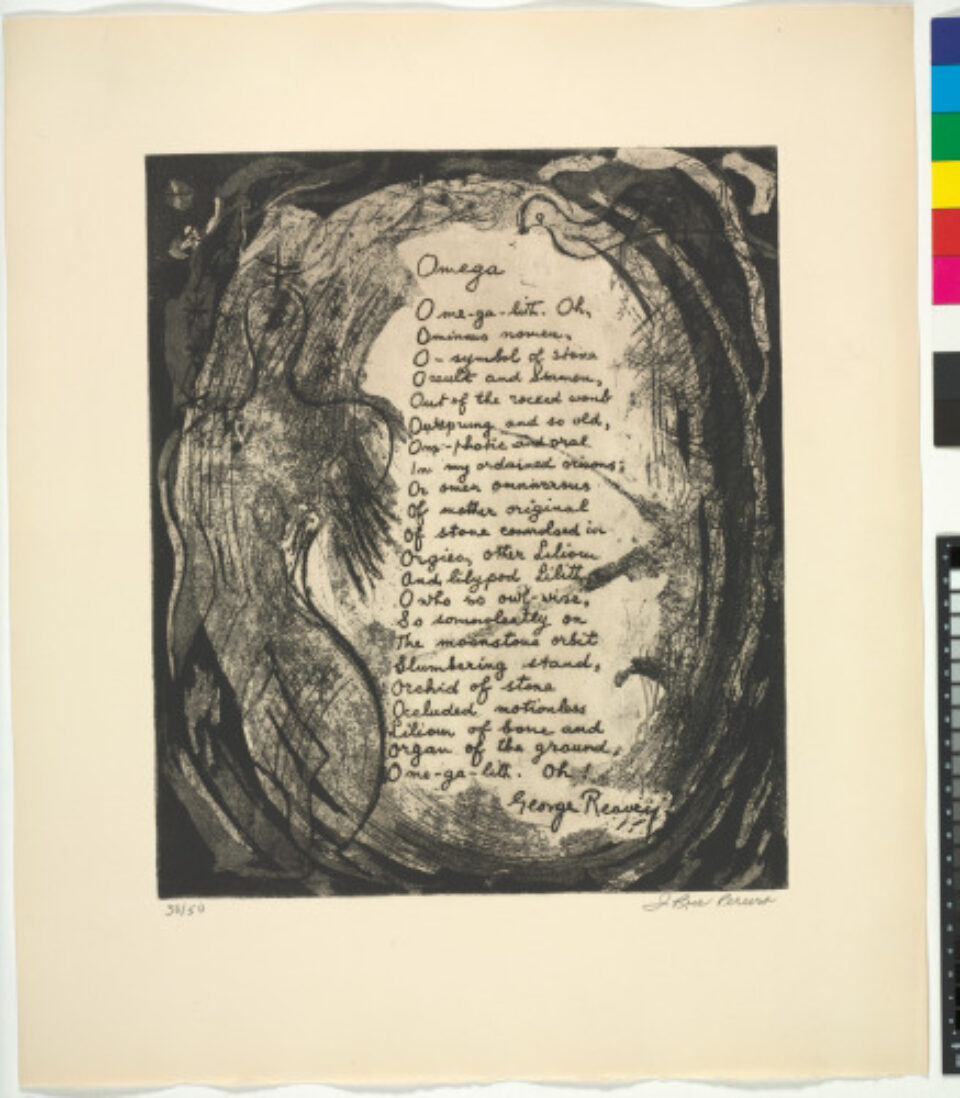 Omega
O me-ga-lith. Oh,
Ominous nomen,
O-symbol of stone
Occult and
Out of the rocked womb
Outsprung and so old,
Om-phatic and oral
In my ordained orisons;
Or omen omnivorous
Of mother original
Of stone in
Orgies, other Lilium
And lilypod Lilith
O who so owl-wise,
So somnolently on
The moonstone orbit
Slumbering stand,
Orchid of stone
Occluded motionless
Lilium of bone and
organ of the ground,
O me-ga-lith. Oh!
George Reavey
36/50
I Rice Pereira